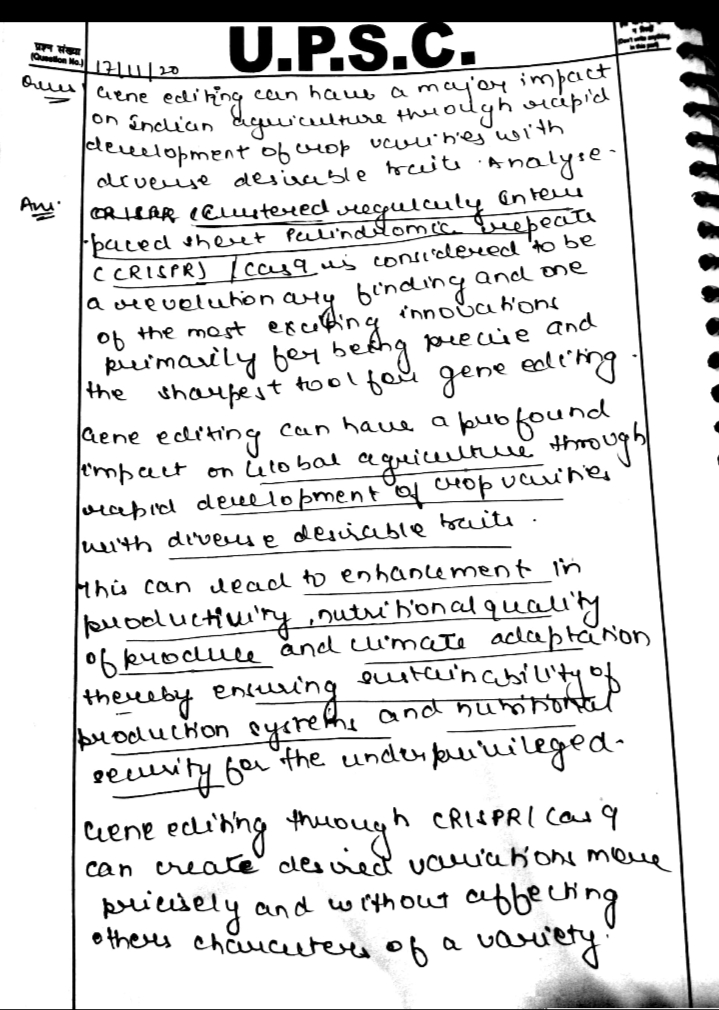 प्रश्न संख्या
(Question No.)
U.P.S.C.
(Don't write anything
in this part)
17/11/20
Ques Gene editing can have a major impact
on Indian agriculture through rapid
development of crop varities with
diverse desirable traits. Analyse.
Ans. CRISPR (Clustered regularly Inters
paced short Palindromic repeats
(CRISPR) / Cas9 is considered to be
a revolutionary finding and one
of the most exciting innovations
primarily for being precise and
the sharpest tool for gene editing.
Gene editing can have a profound
impact on Global agriculture through
rapid development of crop varities
with diverse desirable traits.
This can lead to enhancement in
productivity, nutritional quality
of produce and climate adaptation
thereby ensuring sustainability of
production systems and nutritional
security for the underprivileged.
Gene editing through CRISPR/Cas 9
can create desired variations more
pricisely and without affecting
others characters of a variety.